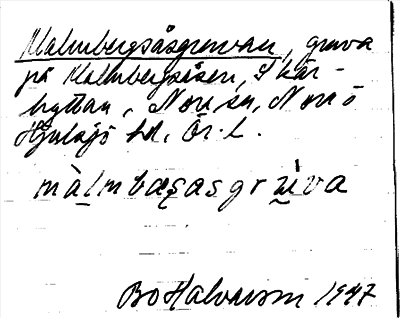 Malmbergsåsgruvan, gruva
på Malmbergsåsen, Skär-
hyttan, Nora sn, Nora o
Hjulsjö hd, Ör. l.
màlmbæṣasgrùva
Bo Halvarson 1947